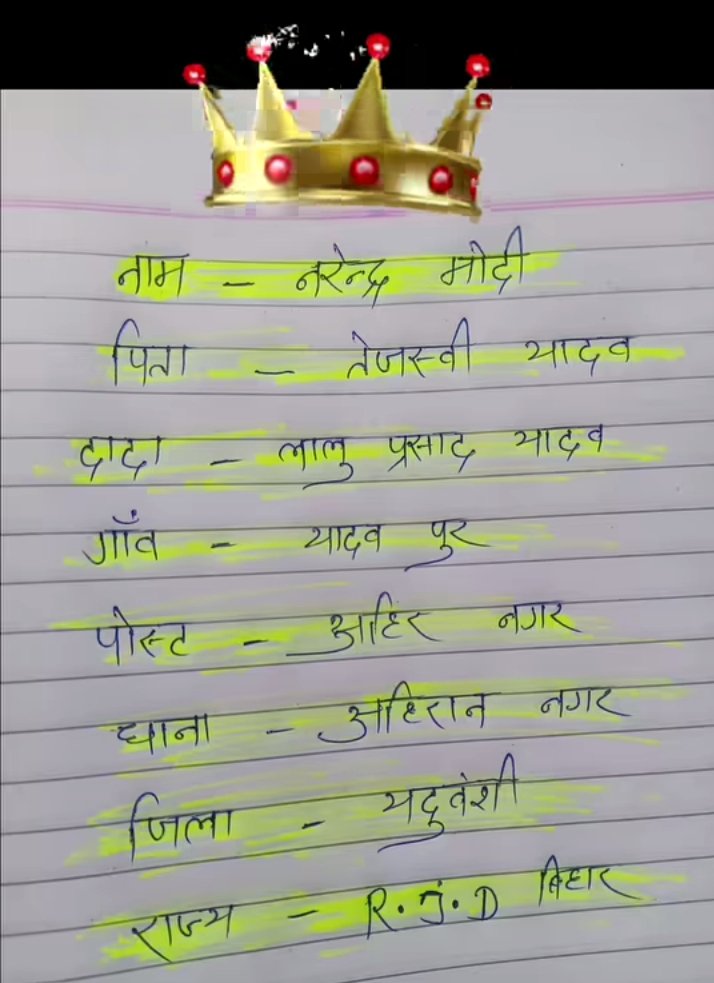 नाम - नरेन्द्र मोदी
पिता - तेजस्वी यादव
दादा - लालु प्रसाद यादव
गाँव - यादव पुर
पोस्ट - अहिर नगर
थाना - अहिरान नगर
जिला - यदुवंशी
राज्य - R.J.D बिहार